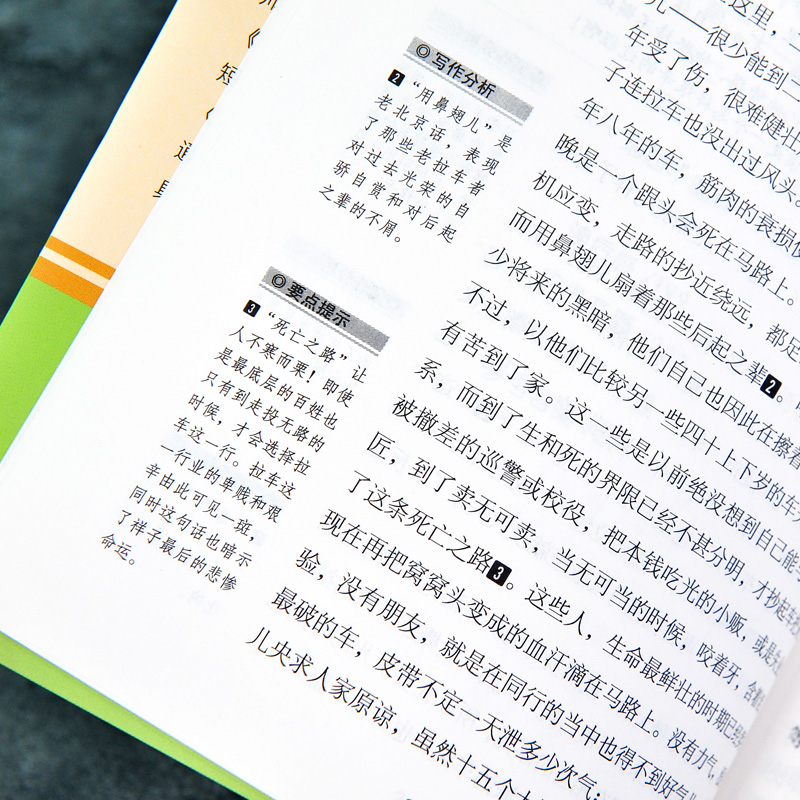 短
通
◎写作分析
2 “用鼻翅儿”是
老北京话，表现
了那些老拉车者
对过去光荣的自
骄自赏和对后起
之辈的不屑。
◎要点提示
3 “死亡之路”让
人不寒而栗！即使
是最底层的百姓也
只有到走投无路的
时候，才会选择拉
车这一行。拉车这
一行业的卑贱和艰
辛由此可见一斑，
同时这句话也暗示
了样子最后的悲惨
命运。
这里，
儿——很少能到二
年受了伤，很难健壮
子连拉车也没出过风头。
年八年的车，筋肉的衰损
晚是一个跟头会死在马路上。
机应变，走路的抄近绕远，都足
而用鼻翅儿扇着那些后起之辈2。
少将来的黑暗，他们自己也因此在擦着
不过，以他们比较另一些四十上下岁的车
有苦到了家。这一些是以前绝没想到自己能
系，而到了生和死的界限已经不甚分明，才抄起车
被撤差的巡警或校役，把本钱吃光的小贩，或是
匠，到了卖无可卖，当无可当的时候，咬着牙，含
了这条死亡之路3。这些人，生命最鲜壮的时期已经
现在再把窝窝头变成的血汗滴在马路上。没有力气，
验，没有朋友，就是在同行的当中也得不到好气
最破的车，皮带不定一天泄多少次气；
儿央求人家原谅，虽然十五个大